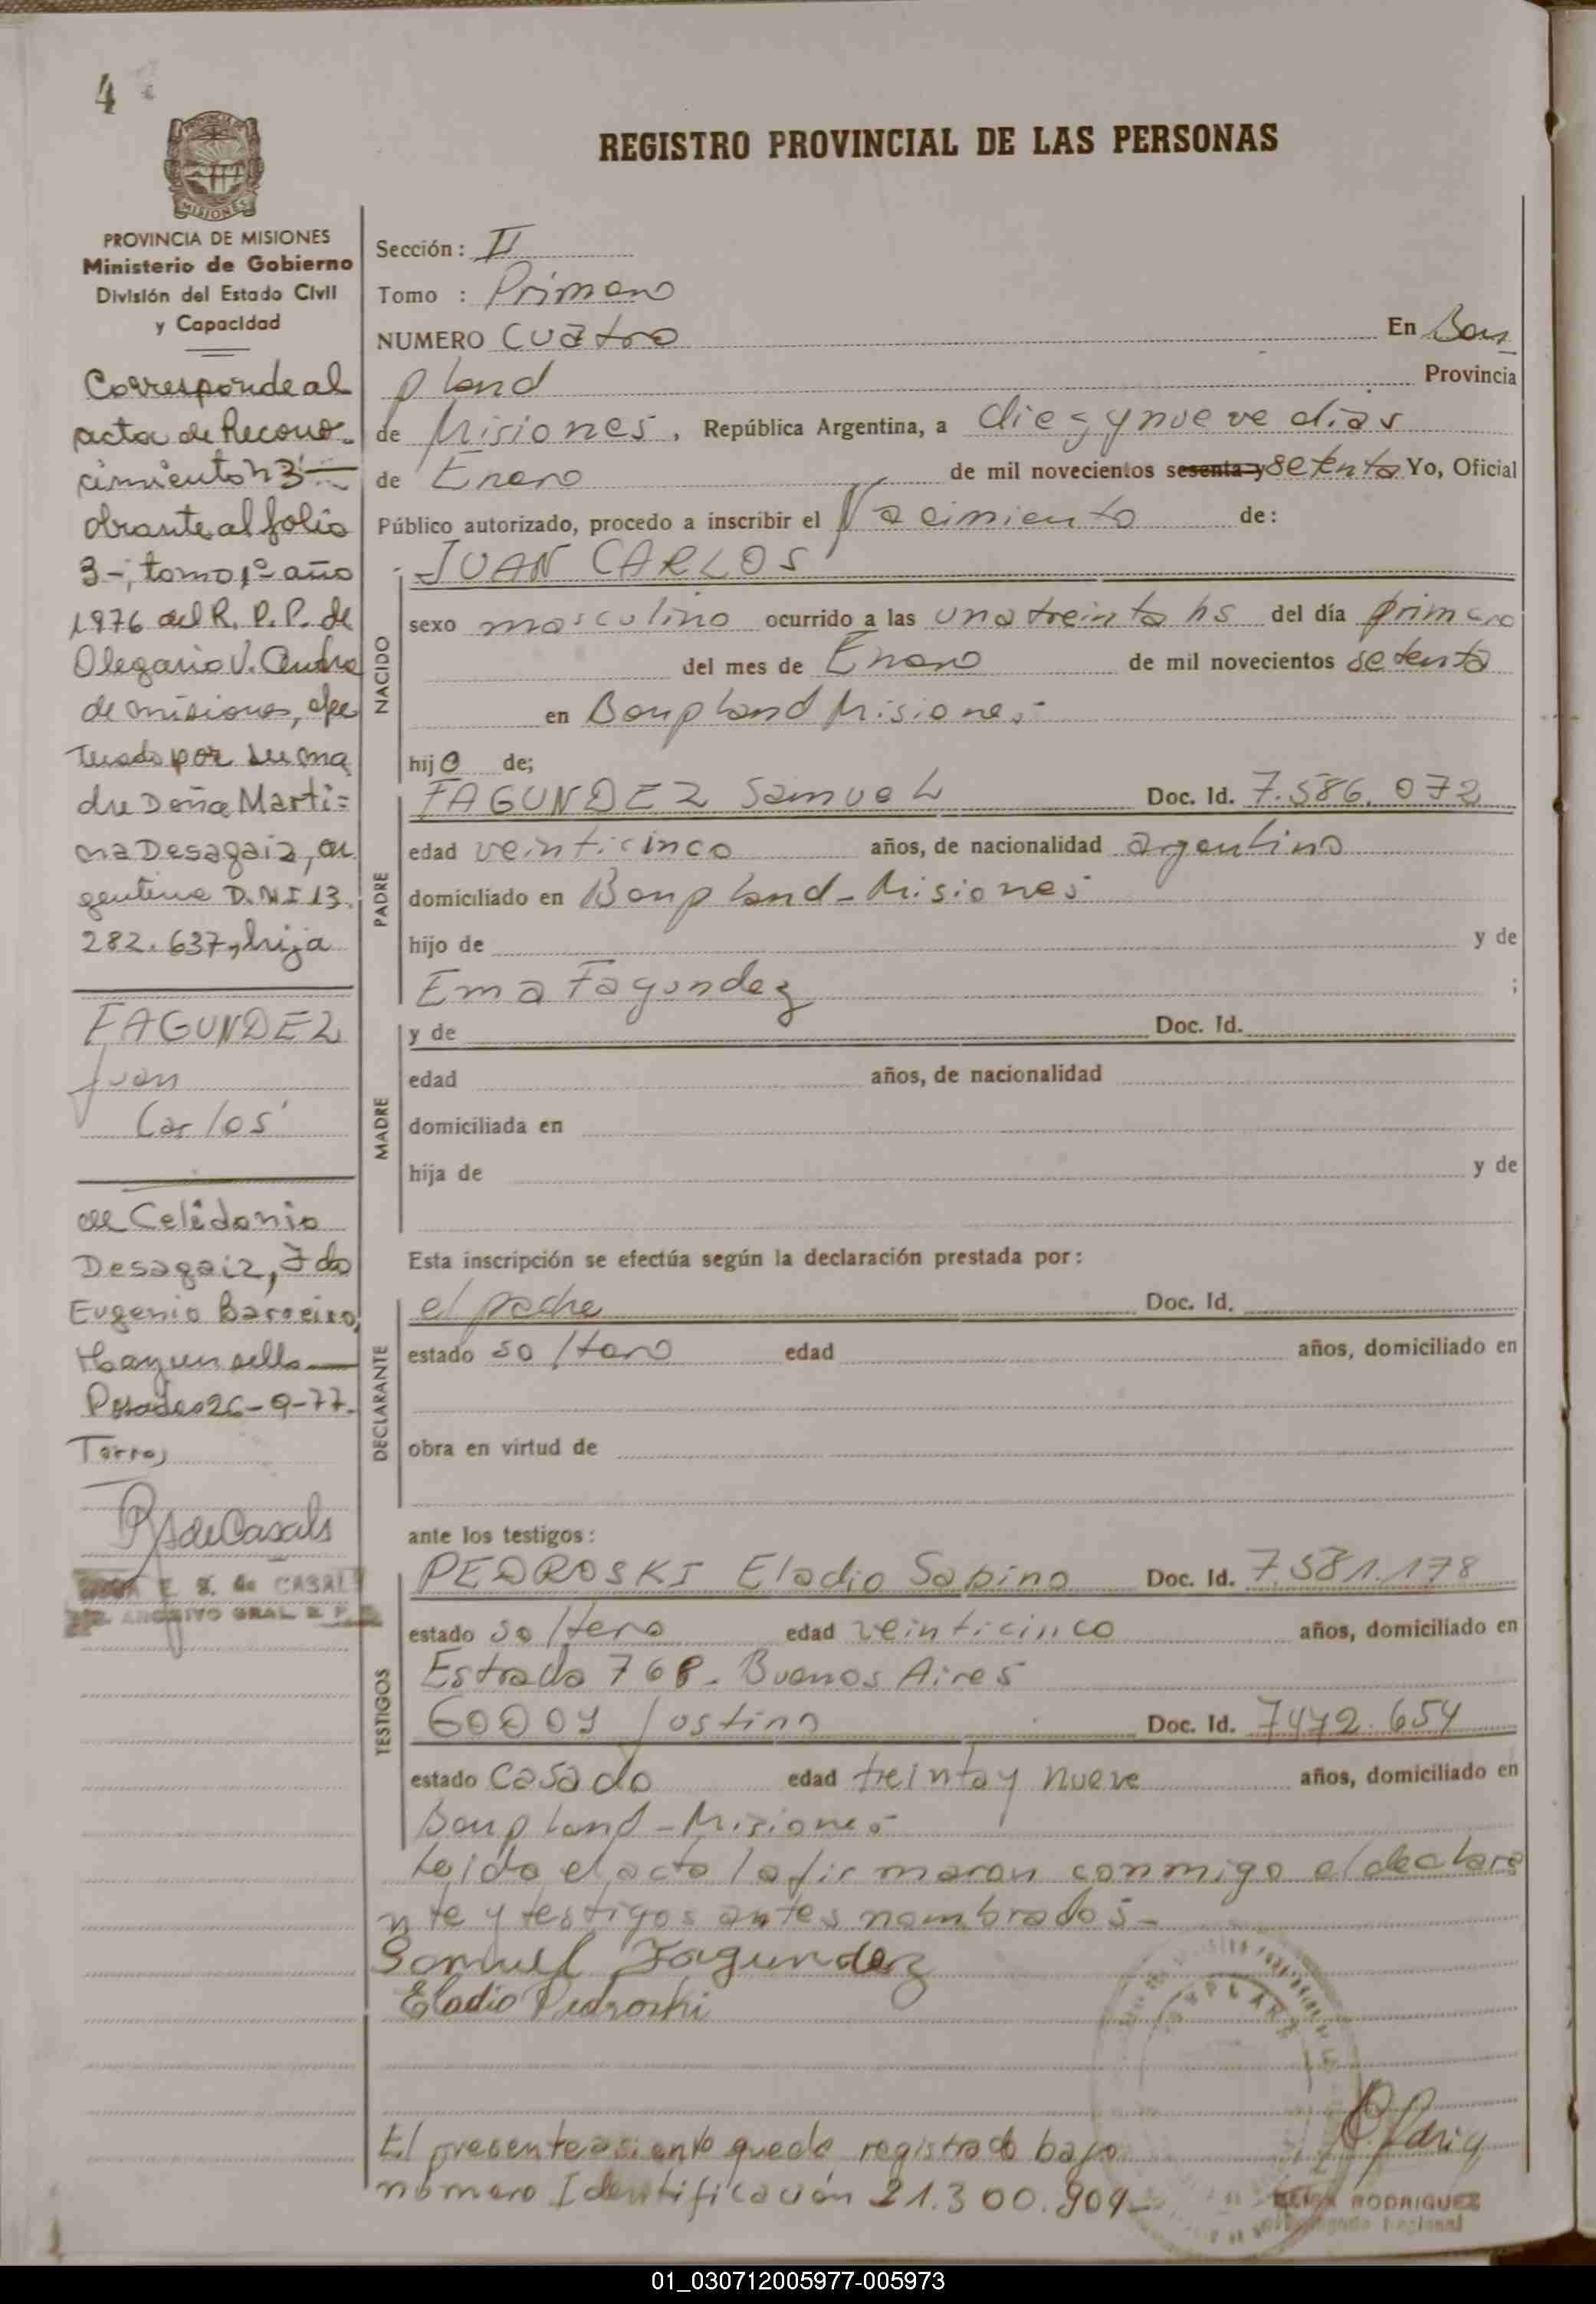 4
REGISTRO PROVINCIAL DE LAS PERSONAS
PROVINCIA DE MISIONES
Ministerio de Gobierno
División del Estado Civil
y Capacidad
Corresponde al
acta de Recono-
cimiento n 3 —
obrante al folio
3-, tomo 1º año
1976 del R. P. P. de
Olegario V. Andra
de misiones, efec
tuado por su ma
dre Doña Marti=
na Desagaiz, ar
gentina D.N.I 13.
282.637, hija
FAGUNDEZ
Juan
Carlos
de Celidonio
Desagaiz, Fdo
Eugenio Barreiro,
Hay un sello —
Posadas 26-9-77.
Torres
RS de Casals
E. S. de CASALS
ARCHIVO GRAL. R. P.
Sección: II
Tomo : Primero
NUMERO cuatro En Bon
pland Provincia
de Misiones, República Argentina, a diez y nueve dias
de Enero de mil novecientos sesenta y setenta Yo, Oficial
Público autorizado, procedo a inscribir el Nacimiento de:
NACIDO
JUAN CARLOS
sexo masculino ocurrido a las una treinta hs del día primero
del mes de Enero de mil novecientos setenta
en Bonpland Misiones-
hijo de;
PADRE
FAGUNDEZ Samuel Doc. Id. 7.586.072
edad veinticinco años, de nacionalidad argentino
domiciliado en Bonpland-Misiones
hijo de y de
Ema Fagundez ;
MADRE
y de Doc. Id.
edad años, de nacionalidad
domiciliada en
hija de y de
Esta inscripción se efectúa según la declaración prestada por:
DECLARANTE
el padre Doc. Id.
estado soltero edad años, domiciliado en
obra en virtud de
ante los testigos:
TESTIGOS
PEDROSKI Eladio Sabino Doc. Id. 7.581.178
estado soltero edad veinticinco años, domiciliado en
Estrada 768. Buenos Aires
GODOY Justino Doc. Id. 7472.654
estado casado edad treinta y nueve años, domiciliado en
Bonpland-Misiones
Leido el acta la firmaron conmigo el declara
nte y testigos antes nombrados-
Samuel Fagundez
Eladio Pedroski
El presente asiento queda registrado bajo
número Identificación 21.300.909-
RODRIGUEZ
01_030712005977-005973